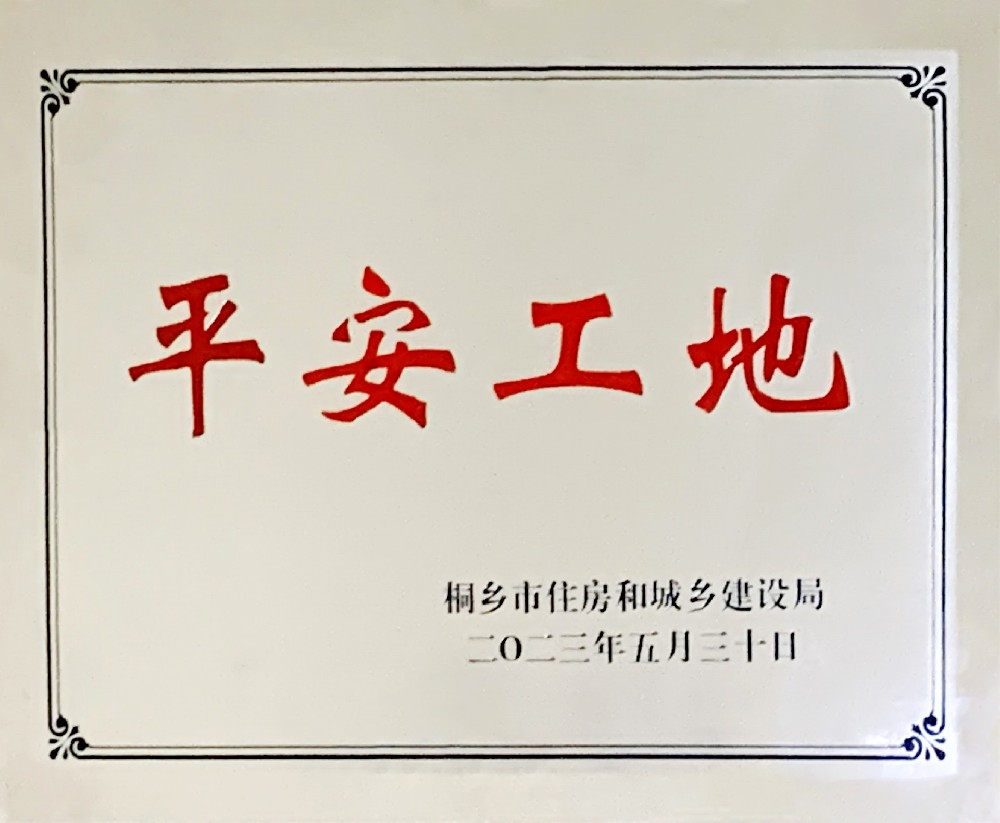 平安工地
桐乡市住房和城乡建设局
二〇二三年五月三十日